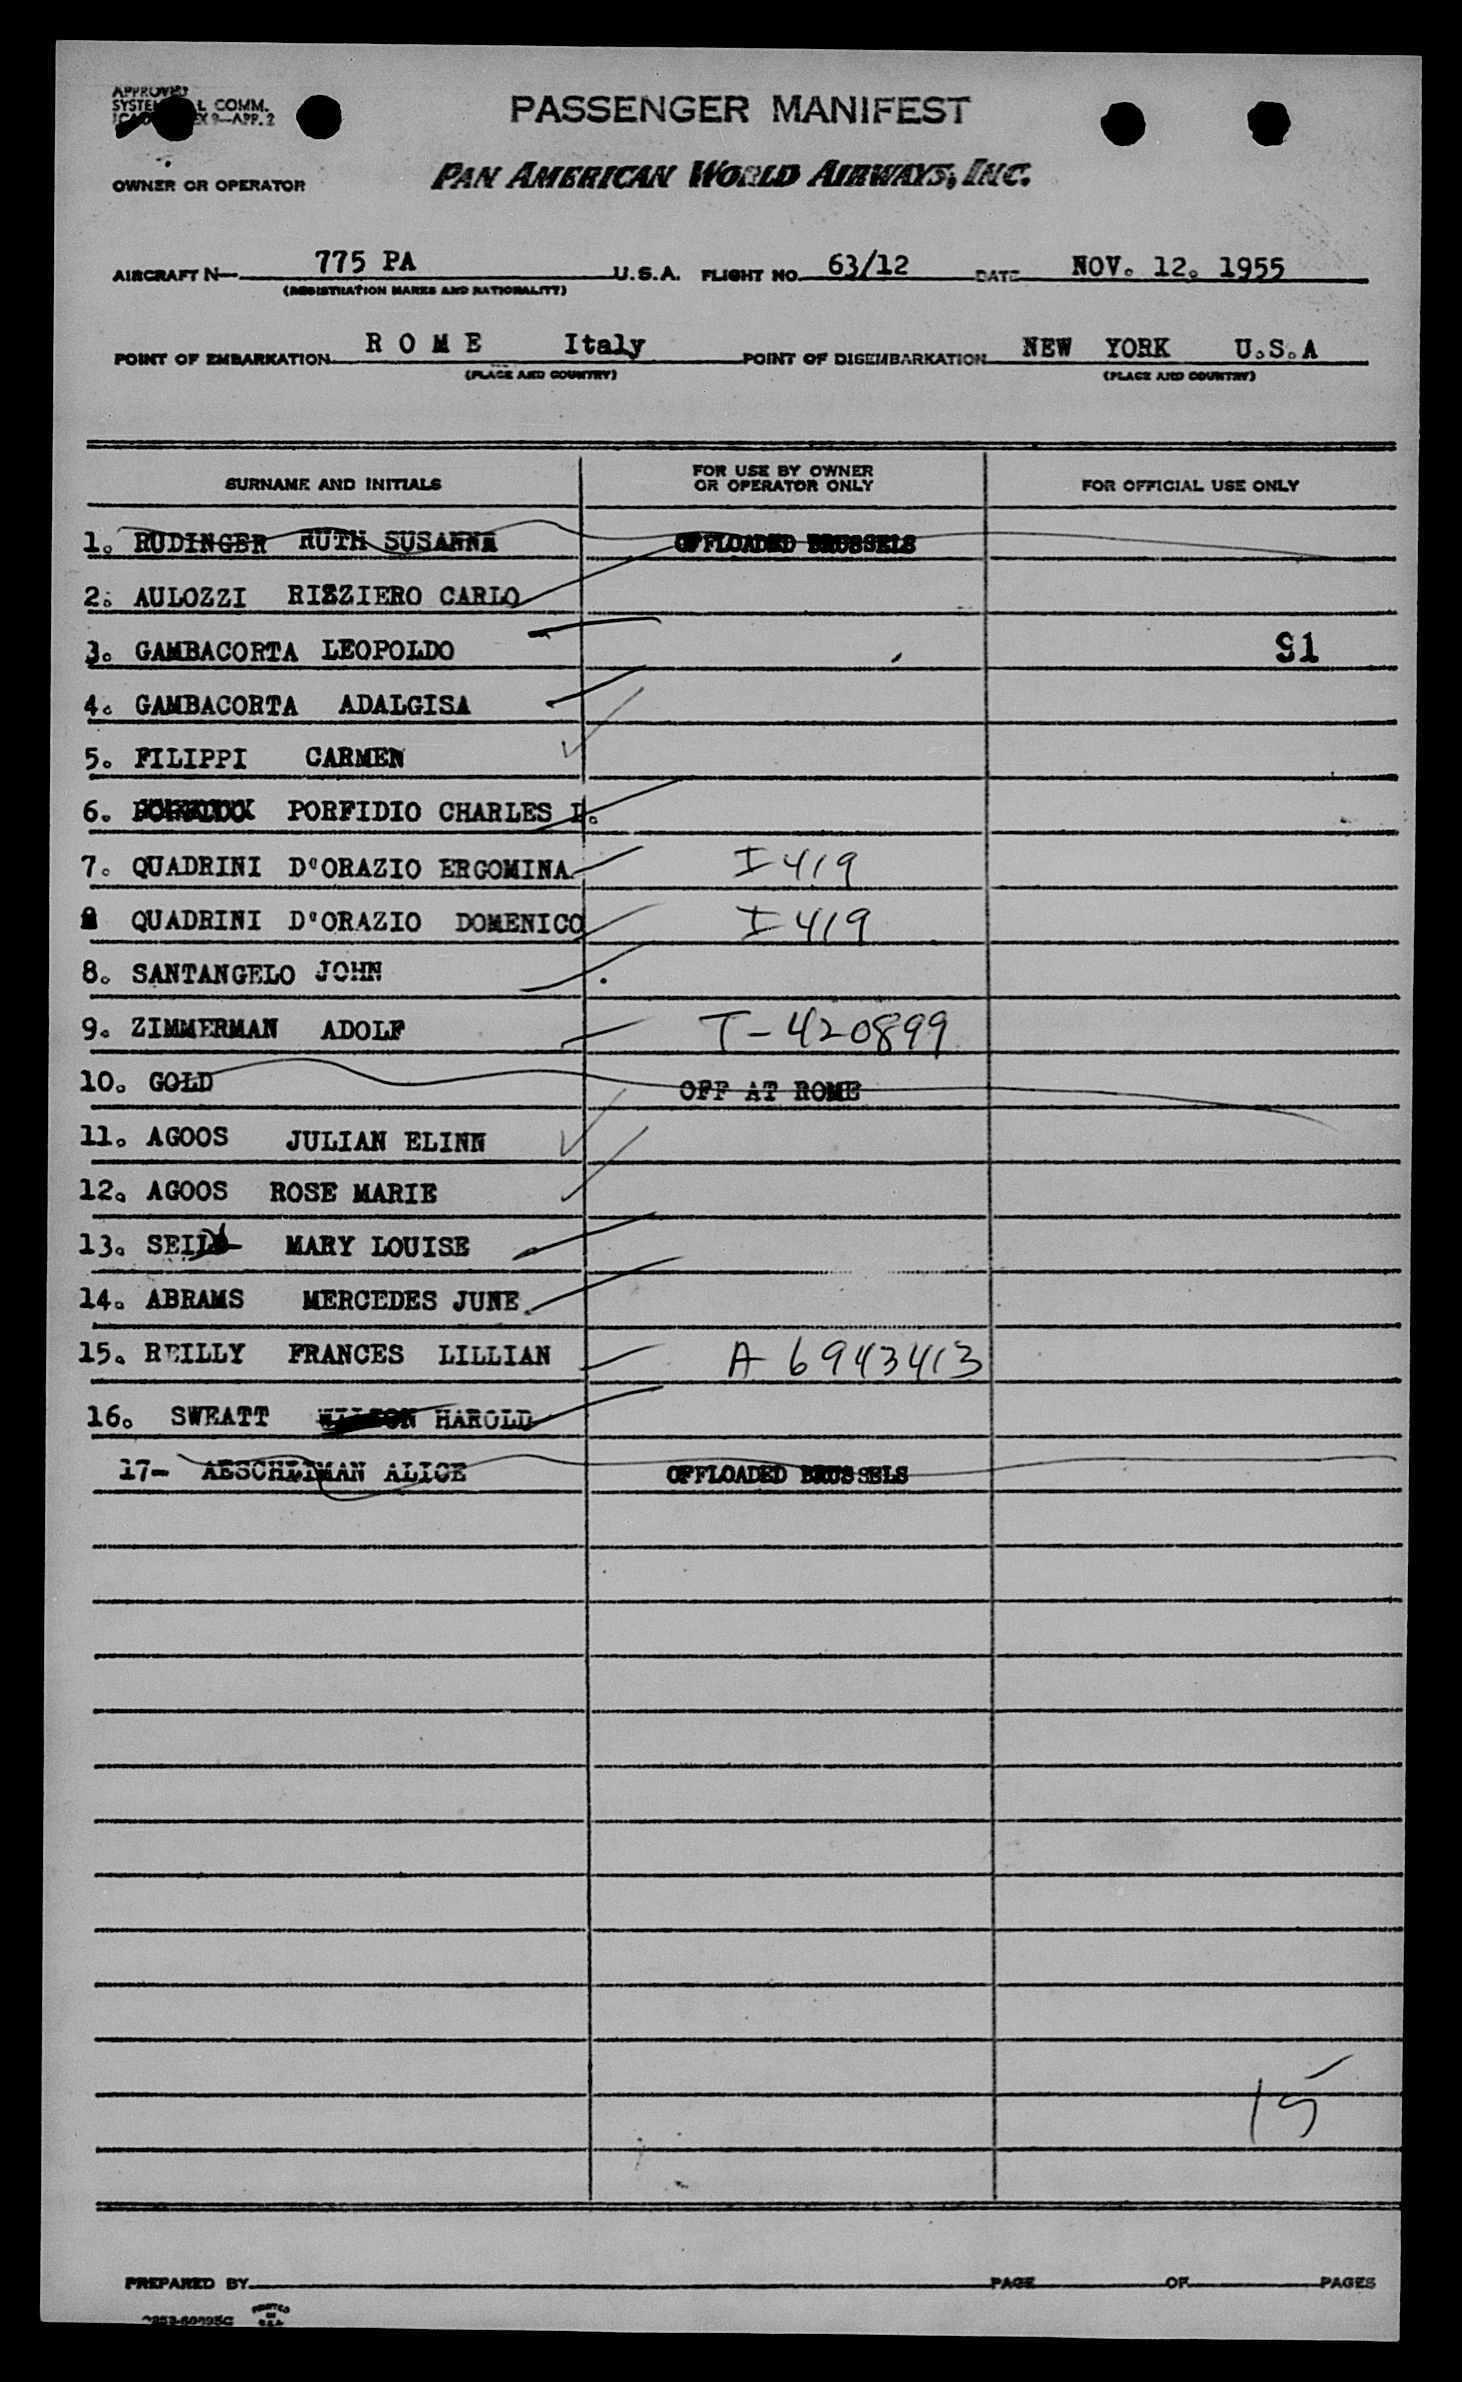 APPROVED
SYSTE L COMM.
ICAO EX 9—APP. 2
PASSENGER MANIFEST
OWNER OR OPERATOR
PAN AMERICAN WORLD AIRWAYS, INC.
AIRCRAFT N— 775 PA U.S.A. FLIGHT NO. 63/12 DATE NOV. 12. 1955
(REGISTRATION MARKS AND NATIONALITY)
POINT OF EMBARKATION R O M E Italy POINT OF DISEMBARKATION NEW YORK U.S.A
(PLACE AND COUNTRY) (PLACE AND COUNTRY)
SURNAME AND INITIALS FOR USE BY OWNER OR OPERATOR ONLY FOR OFFICIAL USE ONLY
1. RUDINGER RUTH SUSANNA OFFLOADED BRUSSELS
2. AULOZZI RIZZIERO CARLO
3. GAMBACORTA LEOPOLDO 91
4. GAMBACORTA ADALGISA
5. FILIPPI CARMEN
6. PORFIDIO CHARLES L.
7. QUADRINI D'ORAZIO ERGOMINA I 419
QUADRINI D'ORAZIO DOMENICO I 419
8. SANTANGELO JOHN
9. ZIMMERMAN ADOLF T-420899
10. GOLD OFF AT ROME
11. AGOOS JULIAN ELINN
12. AGOOS ROSE MARIE
13. SEIL MARY LOUISE
14. ABRAMS MERCEDES JUNE
15. REILLY FRANCES LILLIAN A 6943413
16. SWEATT HAROLD
17- AESCHLIMAN ALICE OFFLOADED BRUSSELS
15
PREPARED BY PAGE OF PAGES
PRINTED
IN
U.S.A.